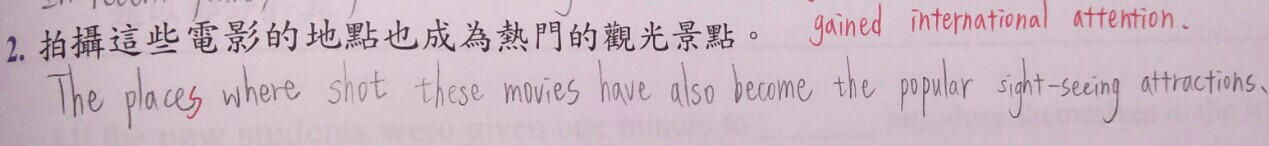 2. 拍攝這些電影的地點也成為熱門的觀光景點。 gained international attention.
The places where shot these movies have also become the popular sight-seeing attractions.